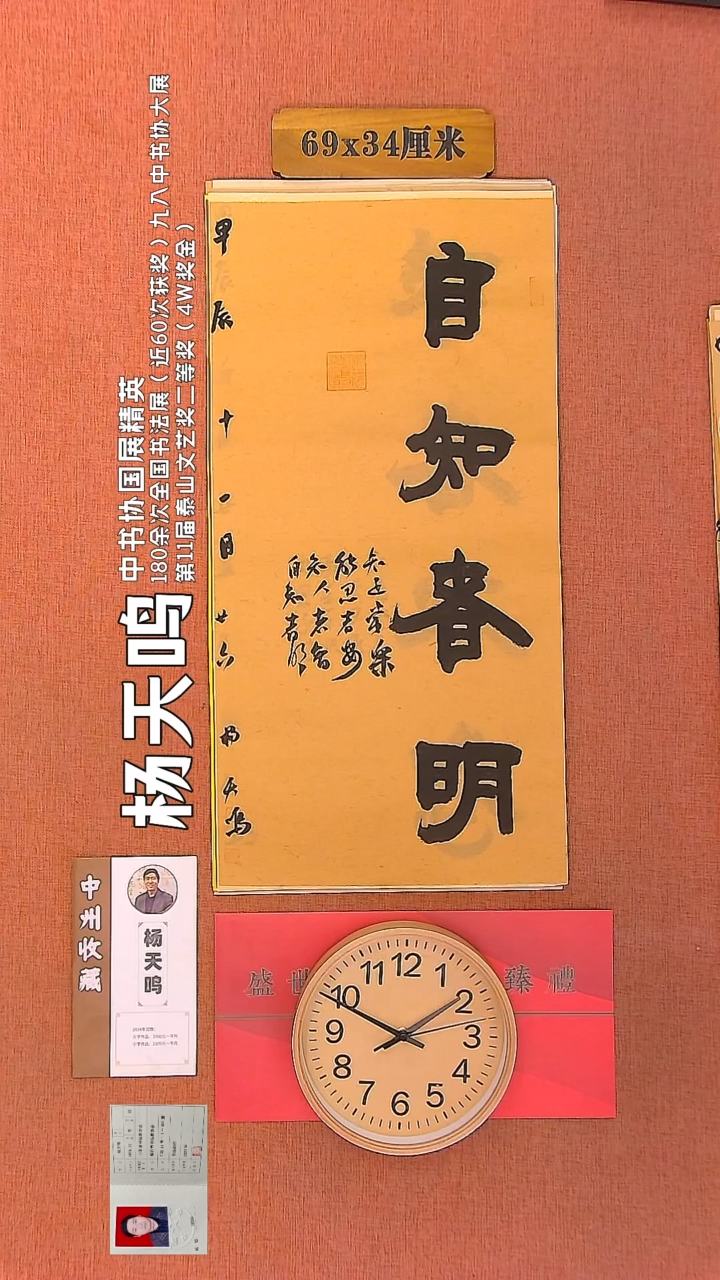 69x34厘米
自知者明
知足常樂
能忍者安
知人者智
自知者明
甲辰十一月廿六 杨天鸣
杨天鸣
中书协国展精英
180余次全国书法展（近60次获奖）九八中书协大展
第11届泰山文艺奖二等奖（4W奖金）
杨天鸣
盛世
臻禮
12
1
2
3
4
5
6
7
8
9
10
11